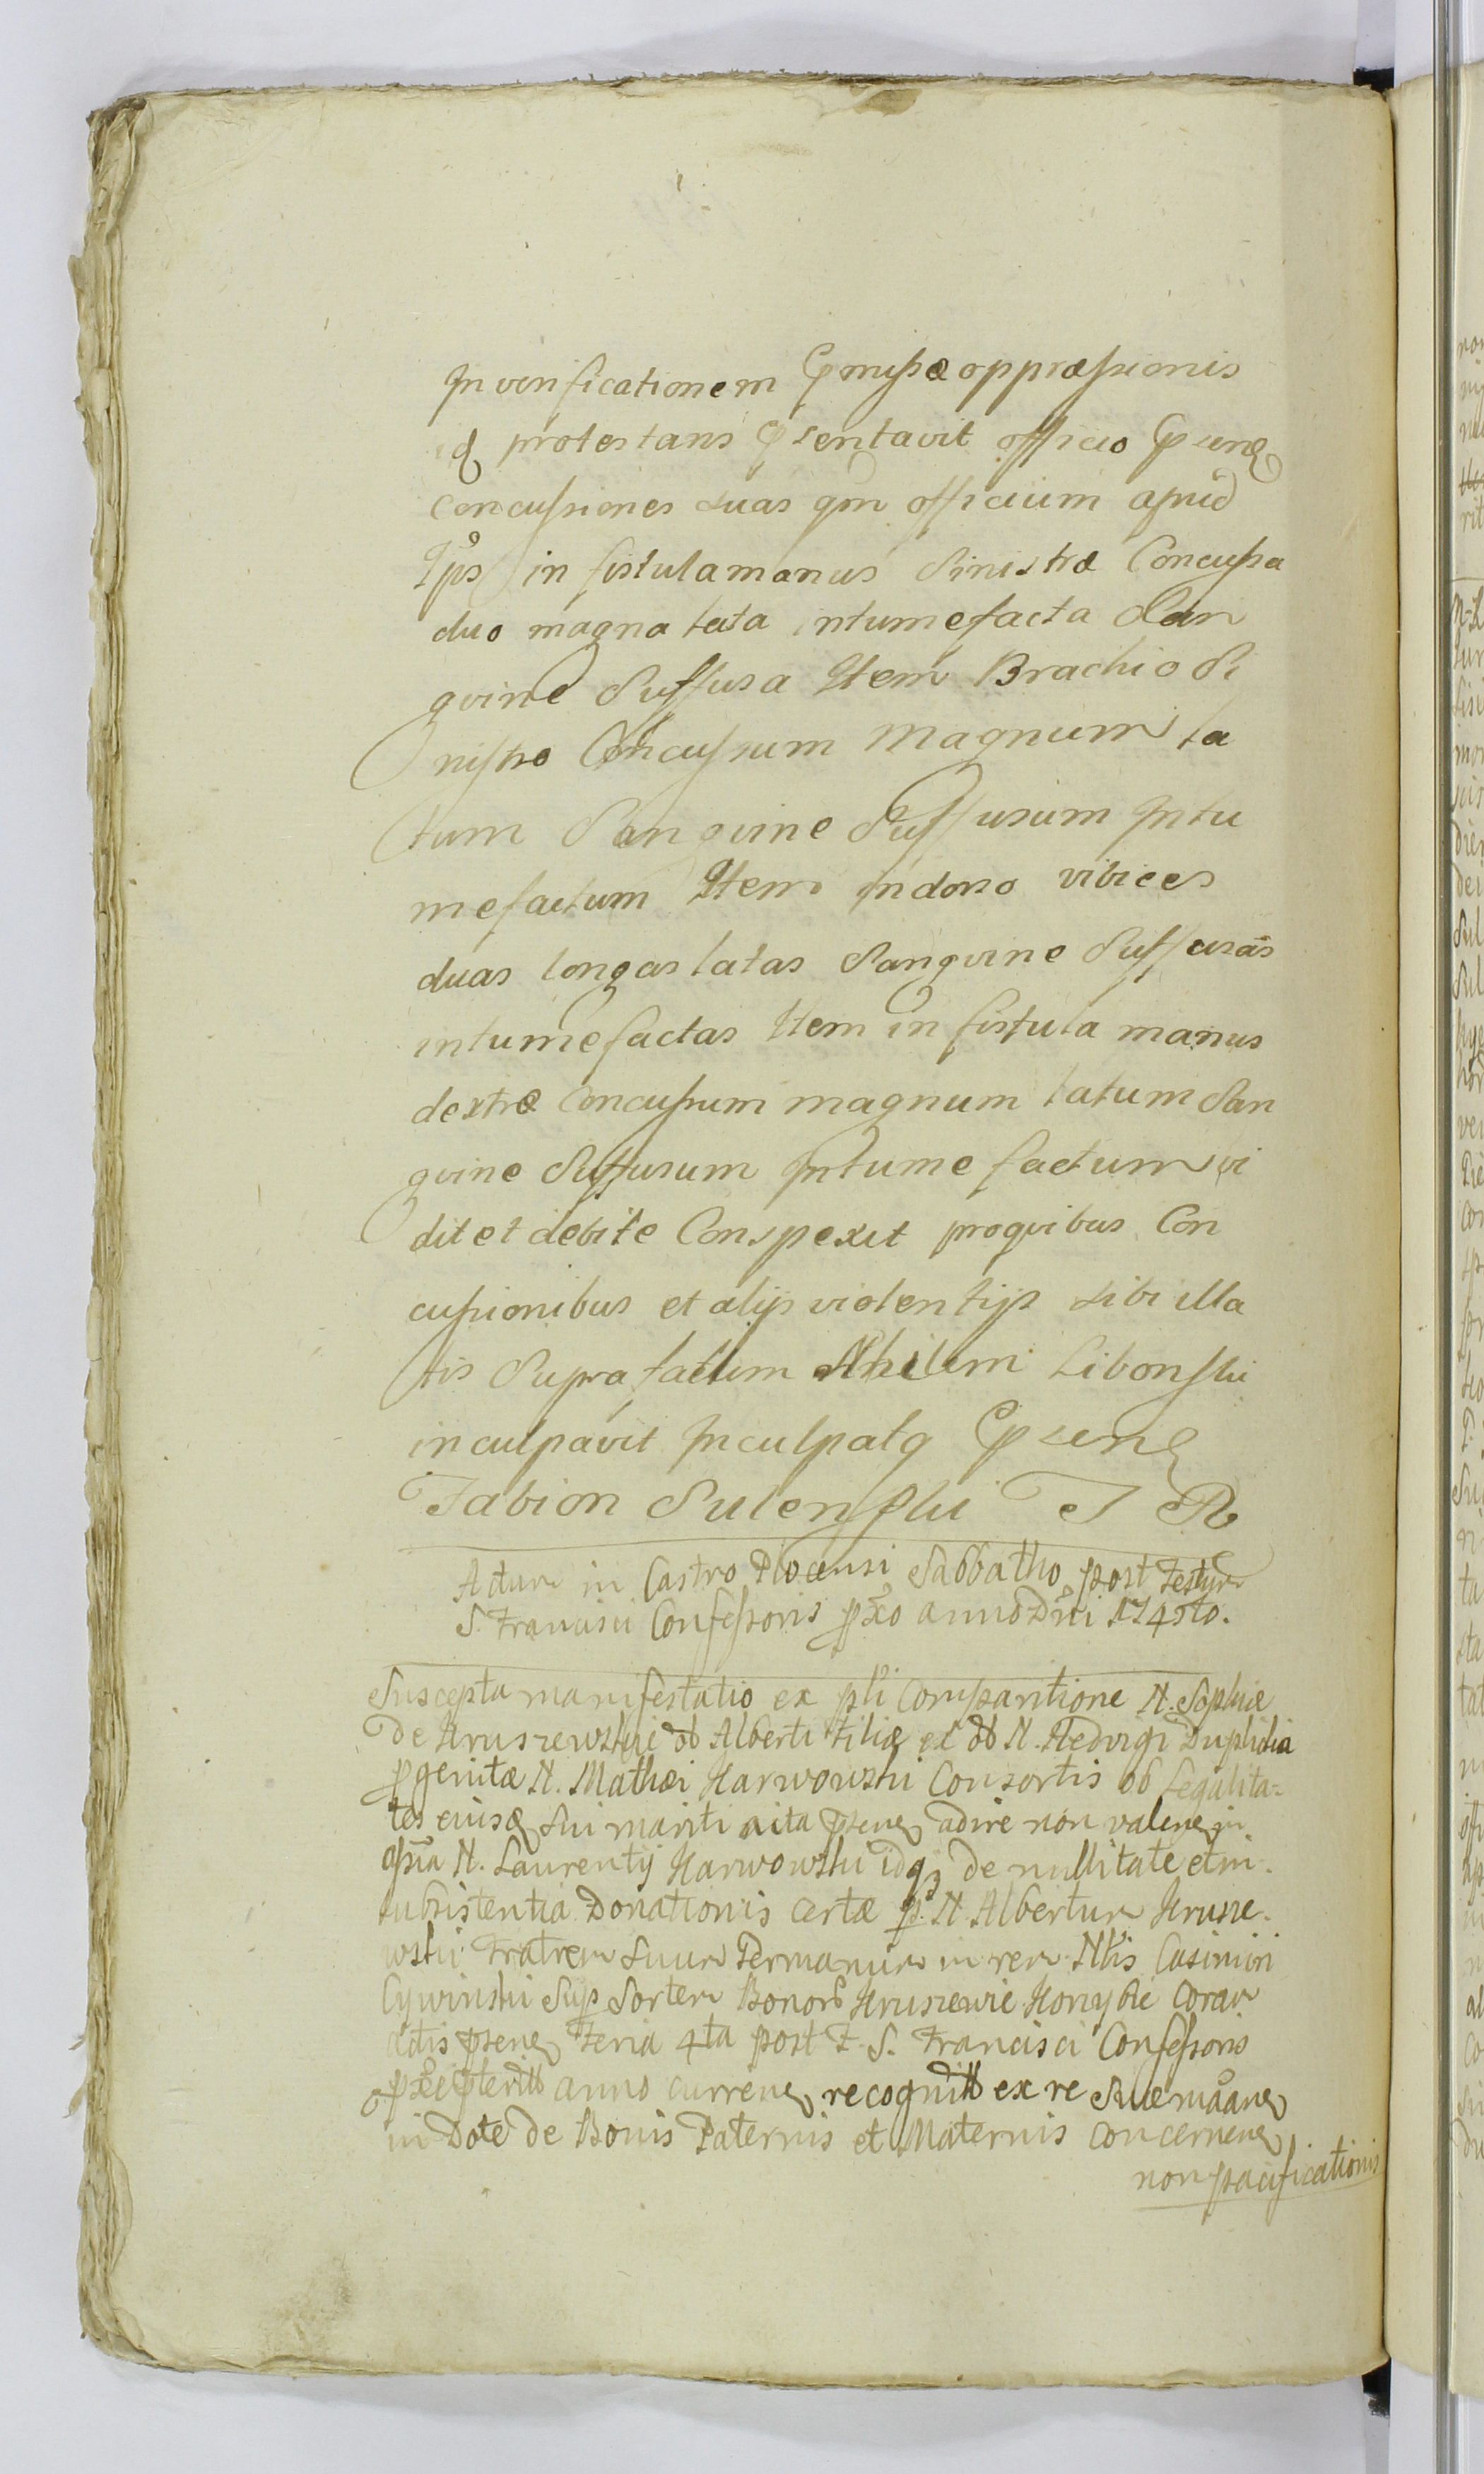 In verificationem præmissæ oppræssionis
idq protestans præsentavit officio præsenq
concussiones suas qm officium apud
Ips in fistula manus Sinistræ Concussa
duo magna lata intumefacta San
gvine Suffusa Item Brachio Si
nistro Concussum Magnum la
tum Sangvine Suffusum Intu
mefactum Item in dorso vibices
duas longas latas Sangvine Suffusas
intumefactas Item in fistula manus
dextræ Concussum magnum latum San
gvine Suffusum Intumefactum vi
dit et debite Conspexit pro qvibus Con
cussionibus et alijs violentijs sibi illa
tis Suprafatum Libonski
inculpavit Inculpatq præsenq
Fabion Sulenski
Actum in Castro Plocensi Sabbatho post Festum
S. Francisci Confessoris pxo anno Dni 1745to.
Suscepta manifestatio ex pli Comparitione N. Sophiæ
De Kruszewskie Alberti Filiæ ex N. Hedvigi Duplicia
pgenitæ N. Mathæi Karwowski Consortis ob legalita=
tes eiusq sui mariti acta psenq adire non valenq in
psia N. Laurentij Karwowski idqz de nullitate et in-
subsistentia Donationis certæ p N. Albertum Krusze-
wski Fratrem Suum Germanum in rem Nlis Casimiri
Cywinski Sup Sortem Bonor Kruszewie Coram
actis psenq Feria 4ta post F. S. Francisci Confessoris
anno currenq recognit ex re Suæ
in Dote de Bonis Paternis et Maternis concernenq
non pacificationis